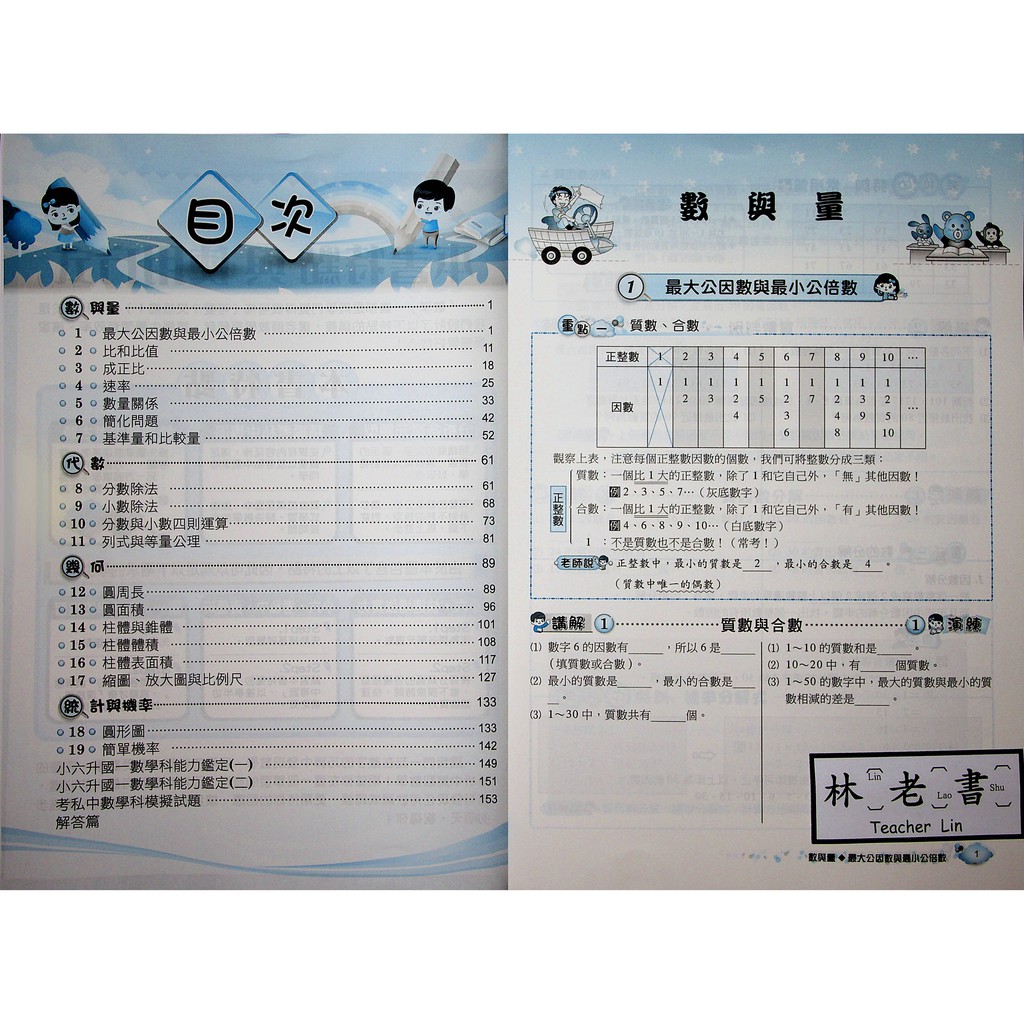 目次
數與量 1
1 最大公因數與最小公倍數 1
2 比和比值 11
3 成正比 18
4 速率 25
5 數量關係 33
6 簡化問題 42
7 基準量和比較量 52
代數 61
8 分數除法 61
9 小數除法 68
10 分數與小數四則運算 73
11 列式與等量公理 81
幾何 89
12 圓周長 89
13 圓面積 96
14 柱體與錐體 101
15 柱體體積 108
16 柱體表面積 117
17 縮圖、放大圖與比例尺 127
統計與機率 133
18 圓形圖 133
19 簡單機率 142
小六升國一數學科能力鑑定(一) 149
小六升國一數學科能力鑑定(二) 151
考私中數學科模擬試題 153
解答篇
數與量
1 最大公因數與最小公倍數
重點一 質數、合數
正整數 1 2 3 4 5 6 7 8 9 10 …
因數 1 1 1 1 1 1 1 1 1 1 …
2 3 2 5 2 7 2 3 2
4 3 4 9 5
6 8 10
觀察上表,注意每個正整數因數的個數,我們可將整數分成三類:
正整數
質數:一個比 1 大的正整數,除了 1 和它自己外,「無」其他因數!
例 2、3、5、7…(灰底數字)
合數:一個比 1 大的正整數,除了 1 和它自己外,「有」其他因數!
例 4、6、8、9、10…(白底數字)
1 :不是質數也不是合數!(常考!)
老師說 正整數中,最小的質數是 2 ,最小的合數是 4 。
(質數中唯一的偶數)
講解 1 質數與合數 1 演練
(1) 數字 6 的因數有______,所以 6 是______
(填質數或合數)。
(2) 最小的質數是______,最小的合數是____
__。
(3) 1~30 中,質數共有______個。
(1) 1~10 的質數和是______。
(2) 10~20 中,有______個質數。
(3) 1~50 的數字中,最大的質數與最小的質
數相減的差是______。
林 Lin 老 Lao 書 Shu
Teacher Lin
數與量◆最大公因數與最小公倍數 1